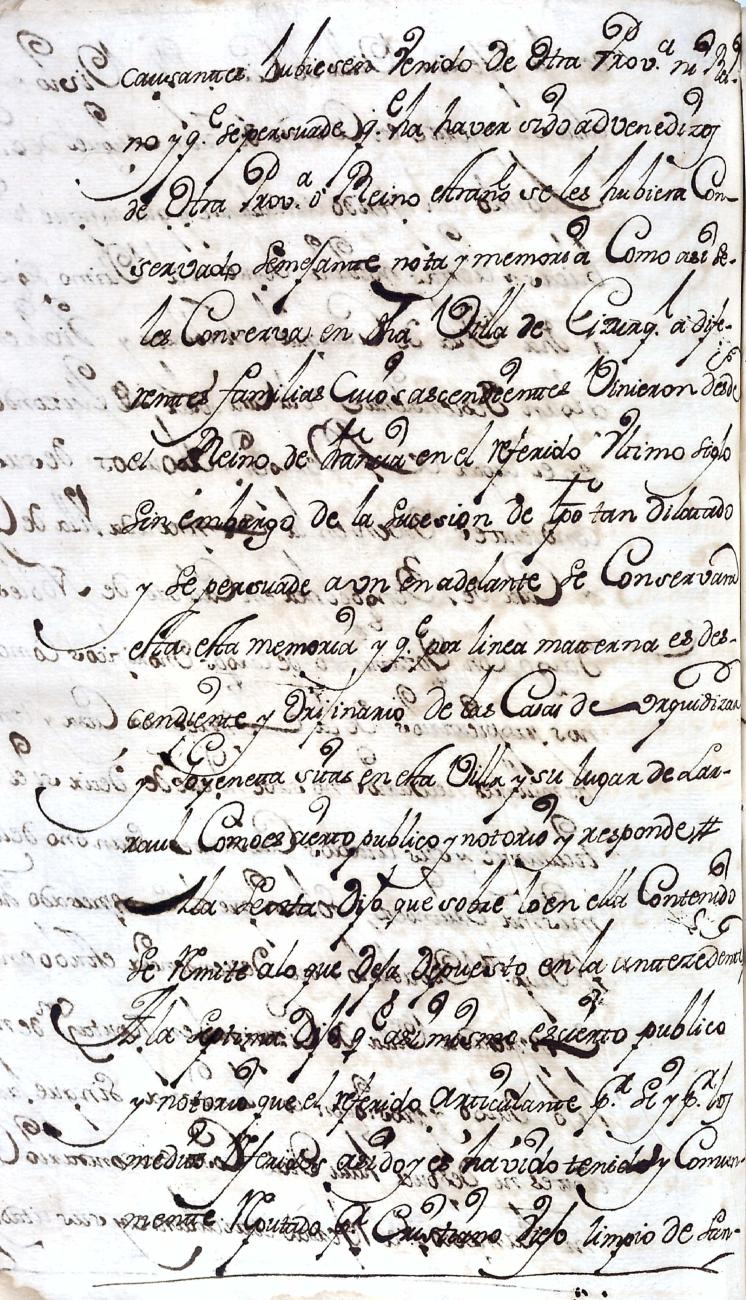 causantes hubiesen Venido de Otra Prov.ª ni Rei-
no y q.e se persuade q.e ha haver sido advenedizos
de Otra Prov.ª ô Reino extraño se les hubiera Con-
servado Semejante nota y memoria Como asi se
les Conserva en dha Villa de Cizurq.l a dife-
rentes familias Cuios ascendientes Vinieron desde
el Reino de Francia en el referido Vltimo siglo
sin embargo de la Susesion de tpo tan dilatado
y se persuade aun en adelante se Conservara
esta memoria y q.e por linea materna es des-
cendiente y Orijinario de las Casas de Yrquidizar
y Goyenetta sitas en esta Villa y su lugar de Lar-
raul Como es cierto publico y notorio y responde #
A la Sexta Dijo que sobre lo en ella Contenido
se Remite a lo que deja depuesto en la antezedente
A la Septima Dijo q.e asi mismo es cierto publico
y notorio que el referido articulante p.r si y p.r los
medios Referidos a sido y es havido tenido y Comun-
mente Reputado p.r Cristiano Viejo limpio de San-